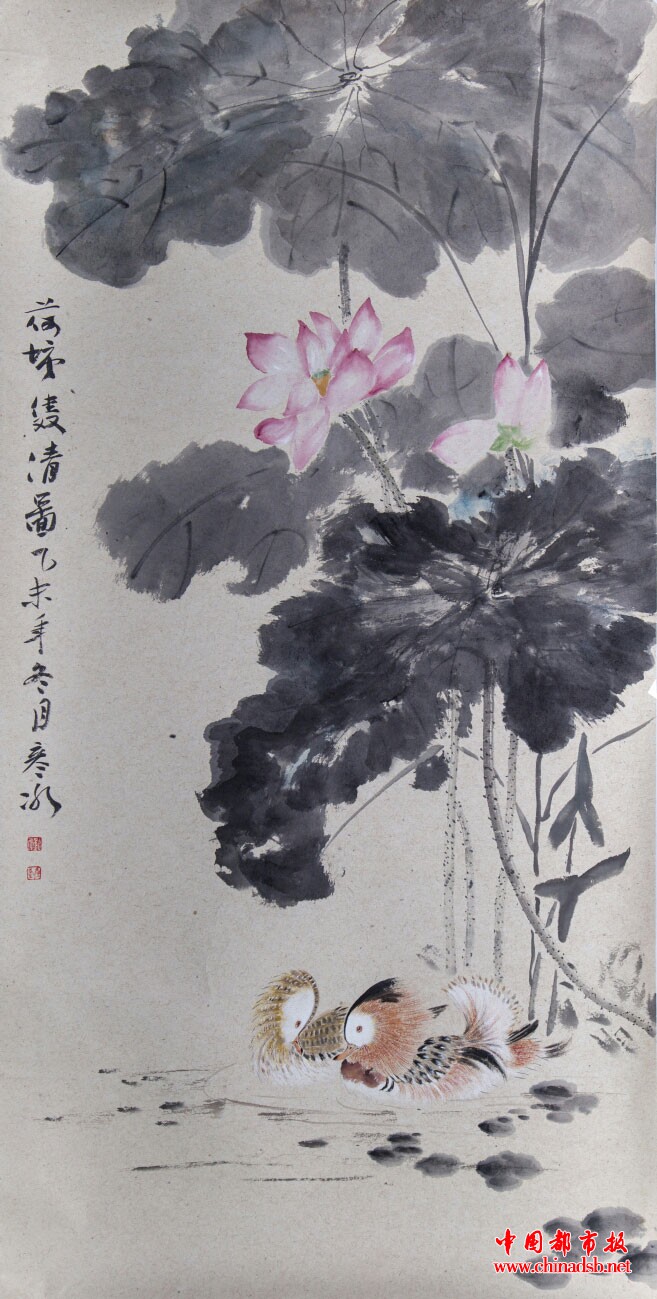 荷塘雙清圖乙未年冬月寒冰
中国都市报
www.chinadsb.net